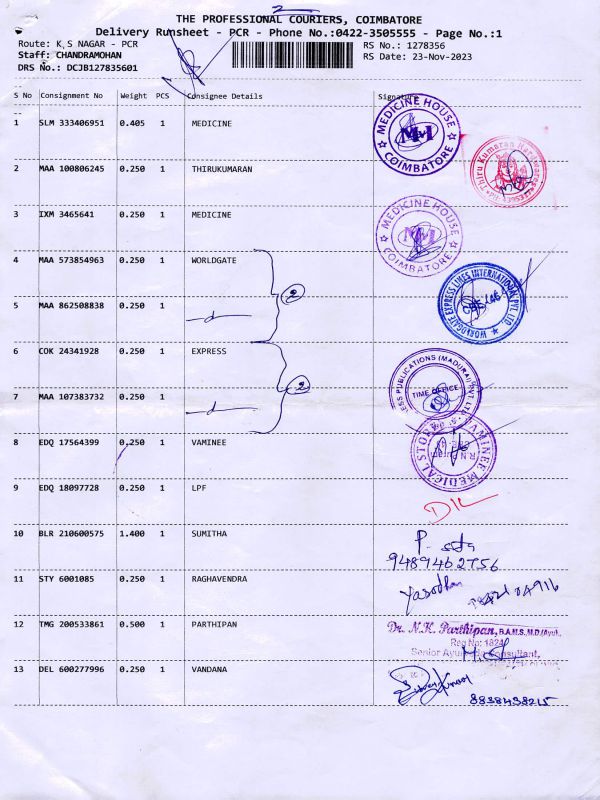 2
THE PROFESSIONAL COURIERS, COIMBATORE
Delivery Runsheet - PCR - Phone No.:0422-3505555 - Page No.:1
Route: K S NAGAR - PCR RS No.: 1278356
Staff: CHANDRAMOHAN RS Date: 23-Nov-2023
DRS No.: DCJB127835601
S No Consignment No Weight PCS Consignee Details Signature
1 SLM 333406951 0.405 1 MEDICINE
MEDICINE HOUSE
COIMBATORE
2 MAA 100806245 0.250 1 THIRUKUMARAN
Thiru Kumaran Hardwares
3 IXM 3465641 0.250 1 MEDICINE
MEDICINE HOUSE
COIMBATORE
4 MAA 573854963 0.250 1 WORLDGATE
2
WORLDGATE EXPRESS LINES INTERNATIONAL PVT. LTD
5 MAA 862508838 0.250 1 —d—
6 COK 24341928 0.250 1 EXPRESS
2
PUBLICATIONS (MADURAI) PVT LTD
TIME OFFICE
7 MAA 107383732 0.250 1 —d—
8 EDQ 17564399 0.250 1 VAMINEE
VAMINEE MEDICAL STORE
9 EDQ 18097728 0.250 1 LPF
10 BLR 210600575 1.400 1 SUMITHA
9489462756
11 STY 6001085 0.250 1 RAGHAVENDRA
Yasodha
12 TMG 200533861 0.500 1 PARTHIPAN
Dr. N.K. Parthipan, B.A.M.S, M.D(Ayu).
Reg No: 1824
Senior Ayurveda Consultant,
13 DEL 600277996 0.250 1 VANDANA
8838498215